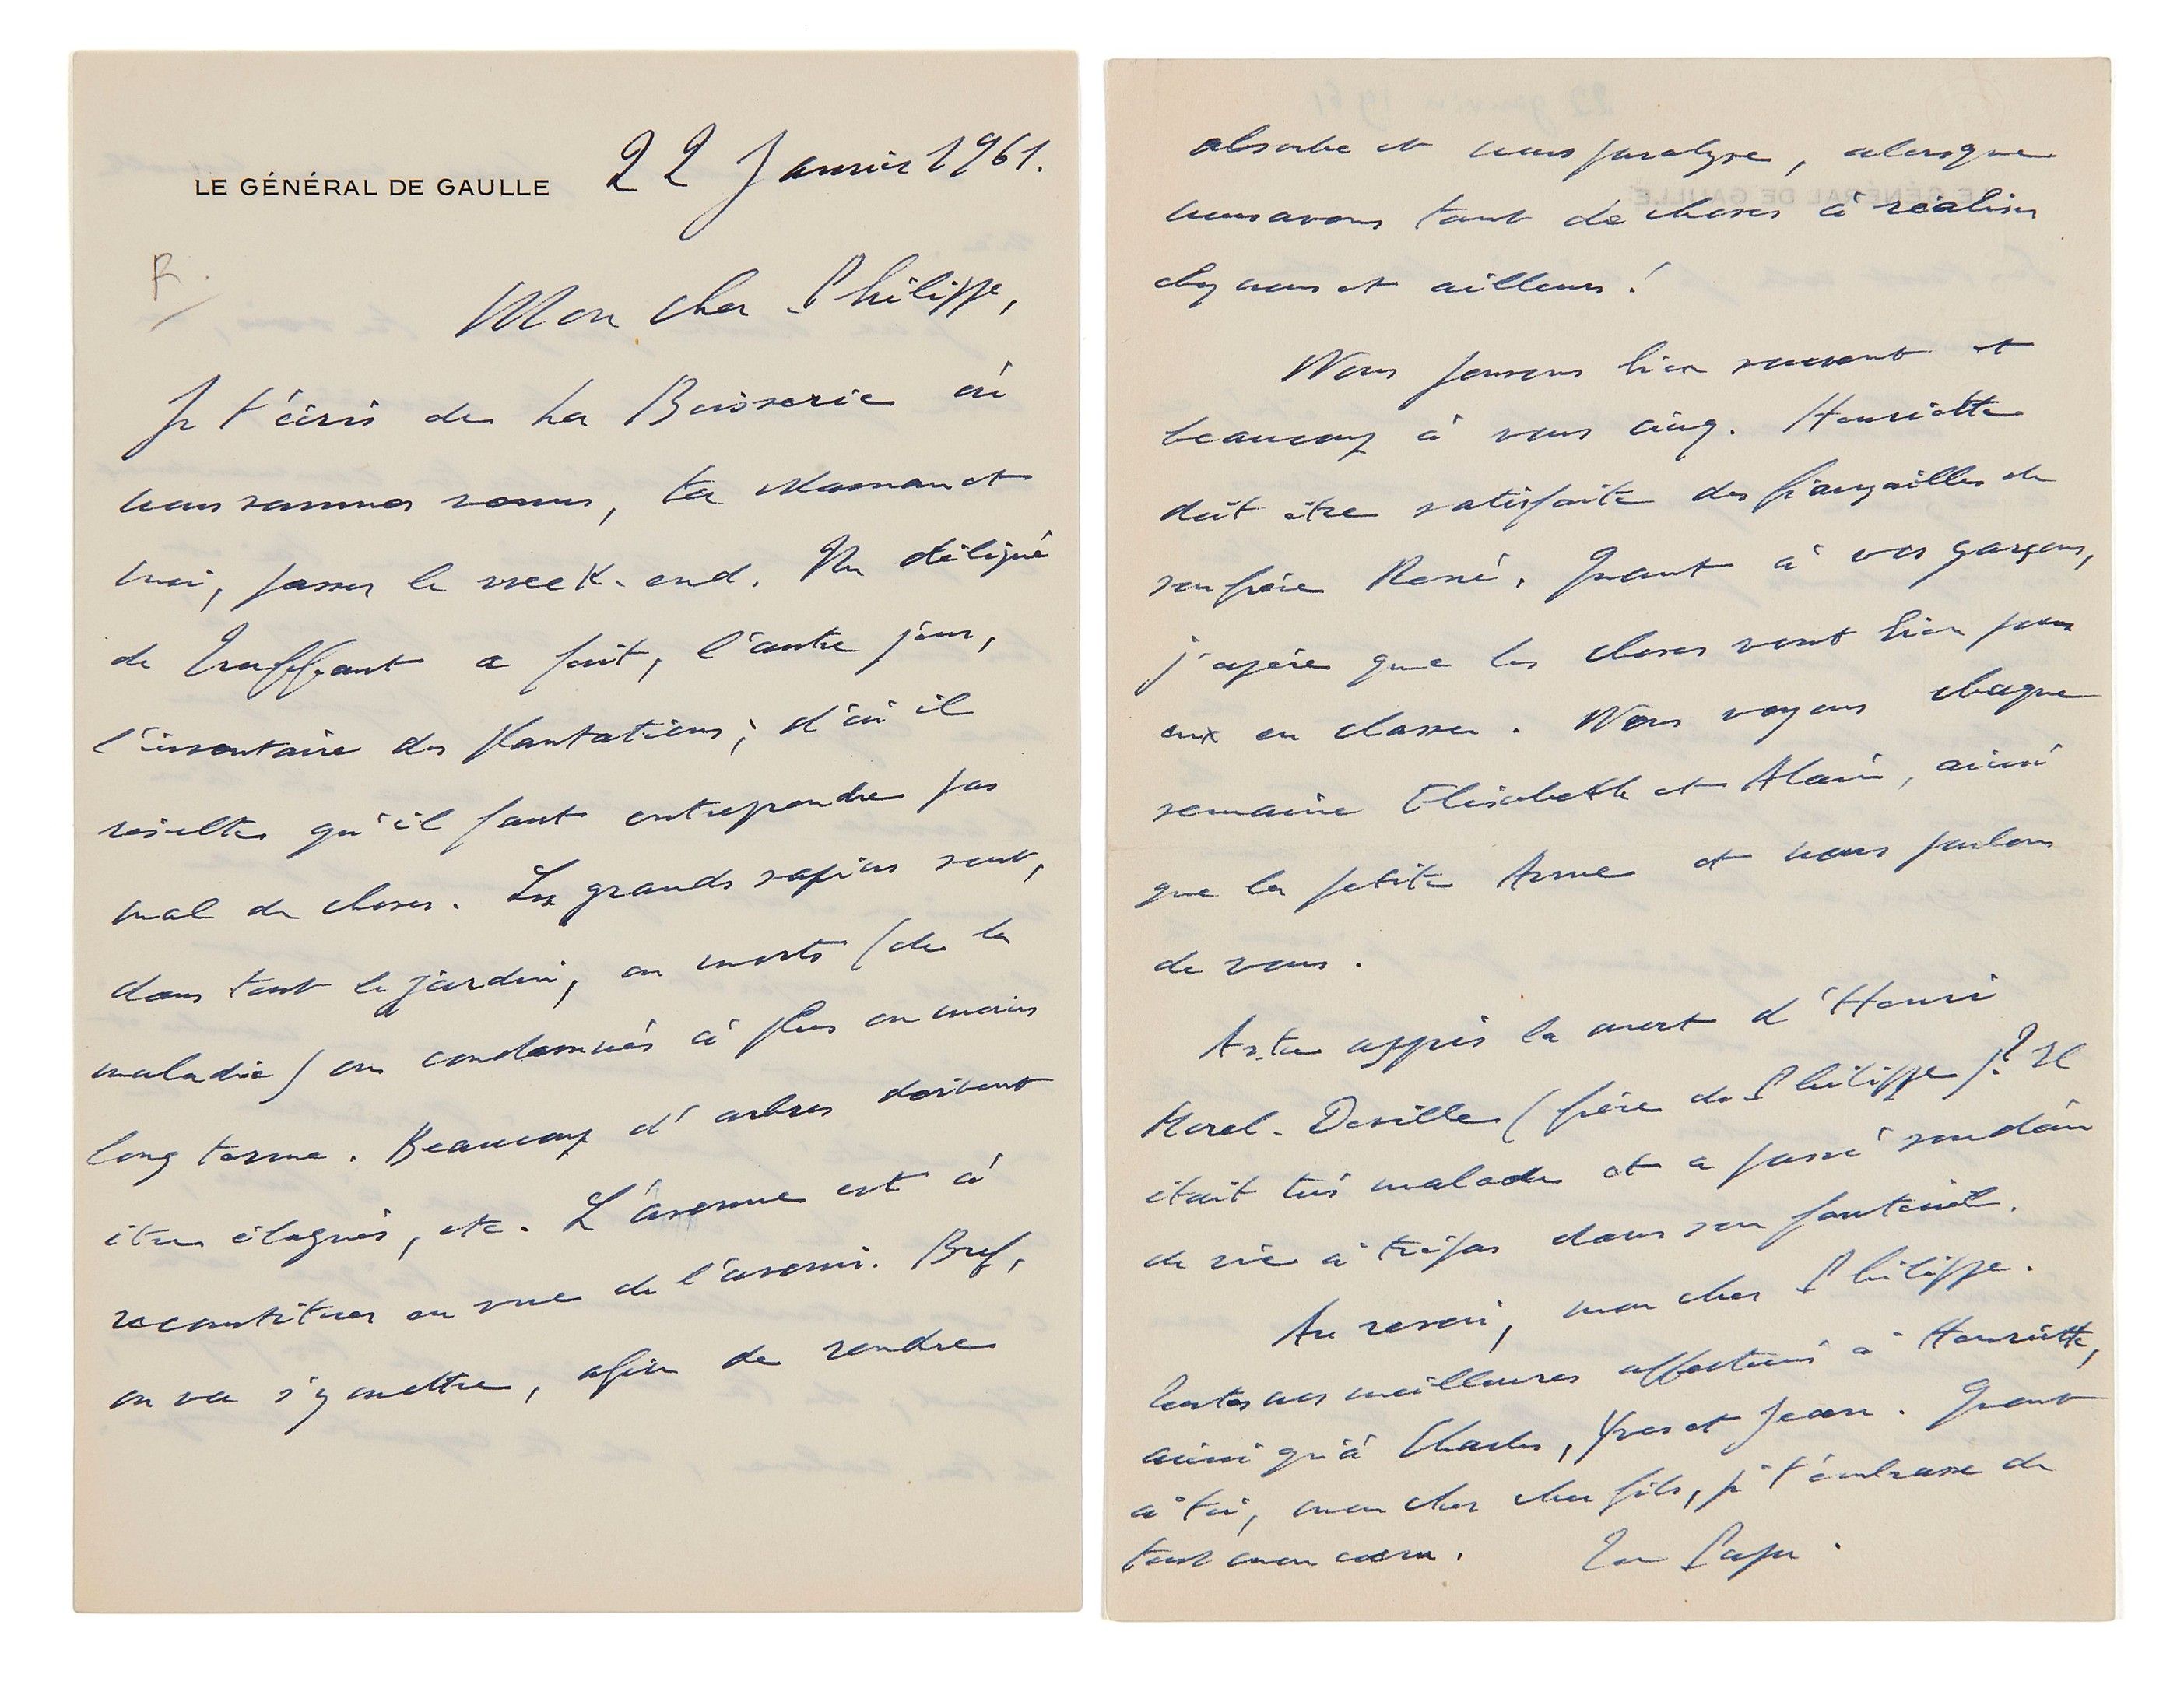 LE GÉNÉRAL DE GAULLE
22 Janvier 1961.
Mon cher Philippe,
Je t'écris de La Boisserie où
nous sommes venus, ta Maman et
moi, passer le week-end. Un délégué
de Truffaut a fait, l'autre jour,
l'inventaire des plantations; d'où il
résulte qu'il faut entreprendre pas
mal de choses. Les grands sapins sont,
dans tout le jardin, ou morts (de la
maladie) ou condamnés à plus ou moins
long terme. Beaucoup d'arbres doivent
être élagués, etc. L'avenue est à
reconstituer en vue de l'avenir. Bref,
on va s'y mettre, afin de rendre
absorbe et nous paralyse, alors que
nous avons tant de choses à réaliser
chez nous et ailleurs!
Nous pensons bien souvent et
beaucoup à vous cinq. Henriette
doit être satisfaite des fiançailles de
son frère René. Quant à vos garçons,
j'espère que les choses vont bien pour
eux en classe. Nous voyons chaque
semaine Elisabeth et Alain, ainsi
que la petite Anne et nous parlons
de vous.
As-tu appris la mort d'Henri
Morel-Deville (frère de Philippe)? Il
était très malade et a passé soudain
de vie à trépas dans son fauteuil.
Au revoir, mon cher Philippe.
Toutes nos meilleures affections à Henriette,
ainsi qu'à Charles, Yves et Jean. Quant
à toi, mon cher cher fils, je t'embrasse de
tout mon cœur. Ton Papa.